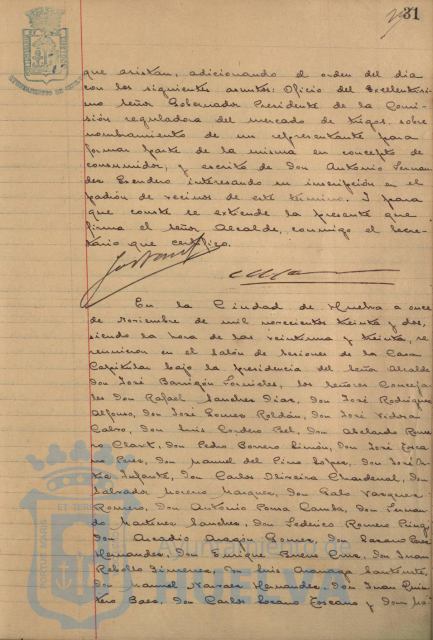 31
que asistan, adicionando el orden del dia
con los siguientes asuntos: Oficio del Excelentísi-
mo Señor Gobernador Presidente de la Comi-
sión reguladora del mercado de trigos, sobre
nombramiento de un representante para
formar parte de la misma en concepto de
consumidor, y escrito de Don Antonio Fernan-
dez Escudero interesando su inscripción en el
padrón de vecinos de este término. Y para
que conste se extiende la presente que
firma el Señor Alcalde, conmigo el Secre-
tario que certifico.
En la Ciudad de Huelva a once
de Noviembre de mil novecientos treinta y dos,
siendo la hora de las veintiuna y treinta, se
reunieron en el Salón de Sesiones de la Casa
Capitular bajo la presidencia del Señor Alcalde
Don José Barrigón Fornieles, los Señores Conceja-
les Don Rafael Sanchez Diaz, Don José Rodriguez
Alfonso, Don José Gomez Roldán, Don José
Calvo, Don Luis Cordero Bel, Don Abelardo Rome-
ro Claret, Don Pedro Borrero Limón, Don José Tosca-
no Don Manuel del Pino Lopez, Don José
Infante, Don Carlos Oliveira Chardenal, Don
Salvador Moreno Marquez, Don Galo Vazquez
Romero, Don Antonio Poma Don Fernan-
do Martinez Sanchez, Don Federico Romero
Don Arcadio Aragón Gomez, Don
Hernandez, Don Enrique Bueno Cruz, Don Juan
Rebollo Jimenez, Don Luis
Don Manuel Narvaez Hernandez, Don Juan Quin-
tero Baez, Don Carlos Lozano Toscano y Don